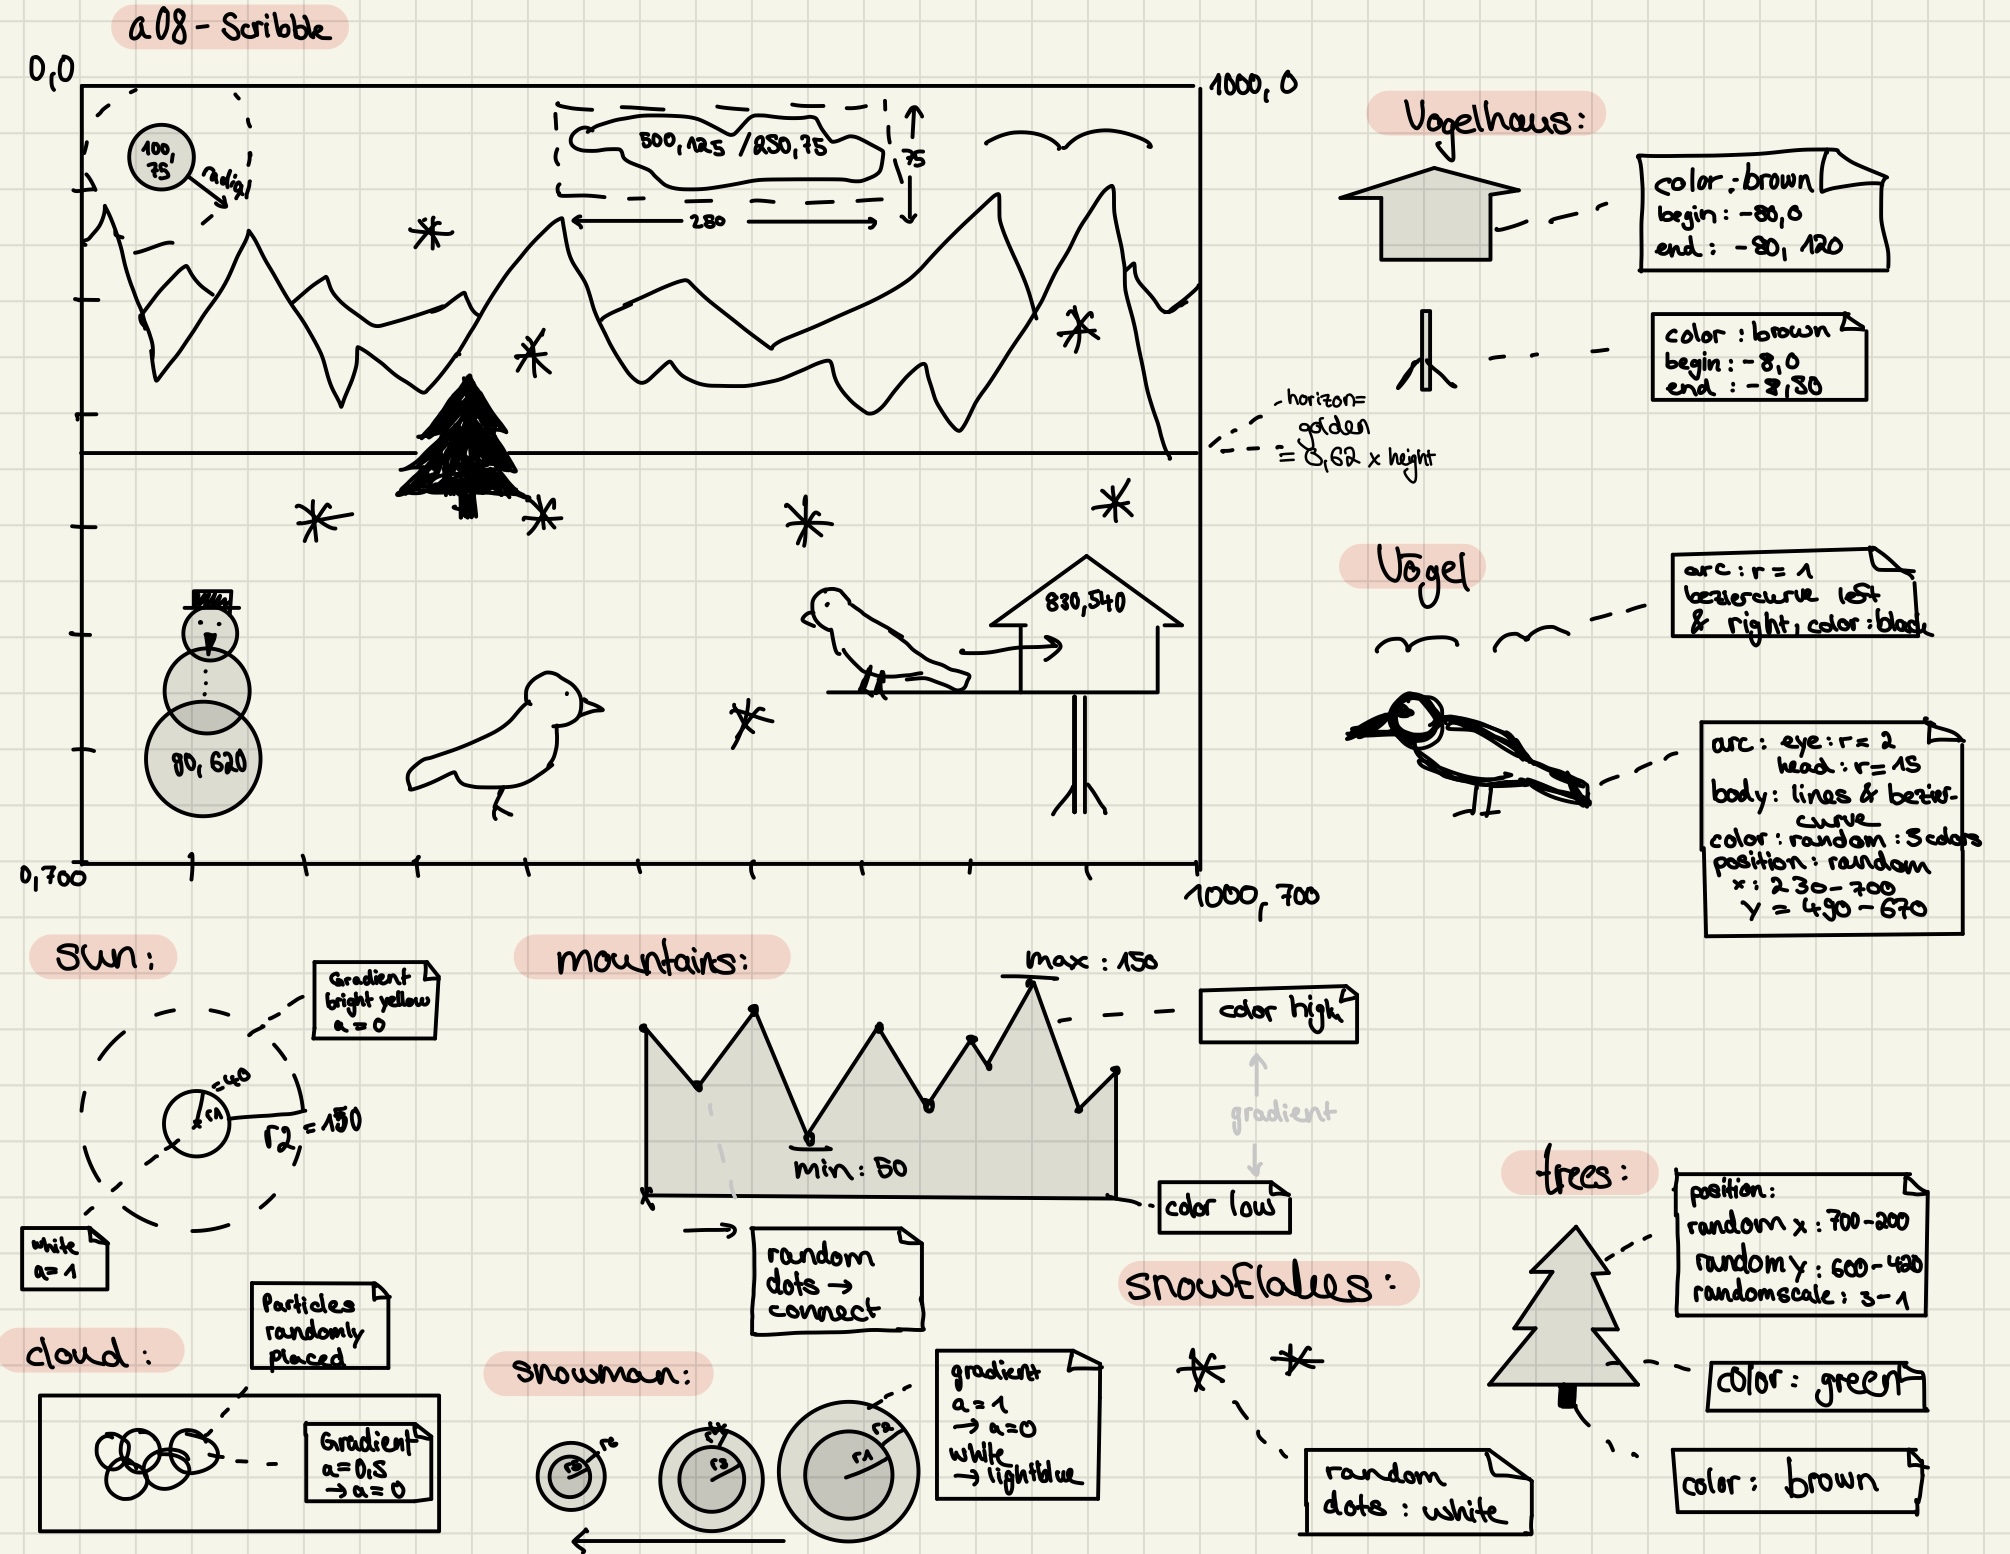 a08 - Scribble
0,0
1000, 0
100,
75
radial
500, 125 / 250, 75
75
280
horizon=
golden
= 0,62 x height
830,540
80, 620
0,700
1000, 700
Vogelhaus:
color: brown
begin: -80,0
end: -80, 120
color: brown
begin: -8,0
end: -8,80
Vögel
arc: r = 1
beziercurve left
& right, color: black
arc: eye: r = 2
head: r = 15
body: lines & bezier-
curve
color: random: 5 colors
position: random
x: 230-700
y = 490-670
sun:
Gradient
bright yellow
a = 0
r1
=40
r2
white
a=1
mountains:
max: 150
min: 50
color high
gradient
color low
random
dots →
connect
cloud:
Particles
randomly
placed
Gradient
a=0,5
→ a=0
snowman:
r6
r5
r4
r3
r2
r1
gradient
a=1
→ a=0
white
→ lightblue
snowflakes:
random
dots: white
trees:
position:
random x: 700-200
random y: 600-420
random scale: 3-1
color: green
color: brown